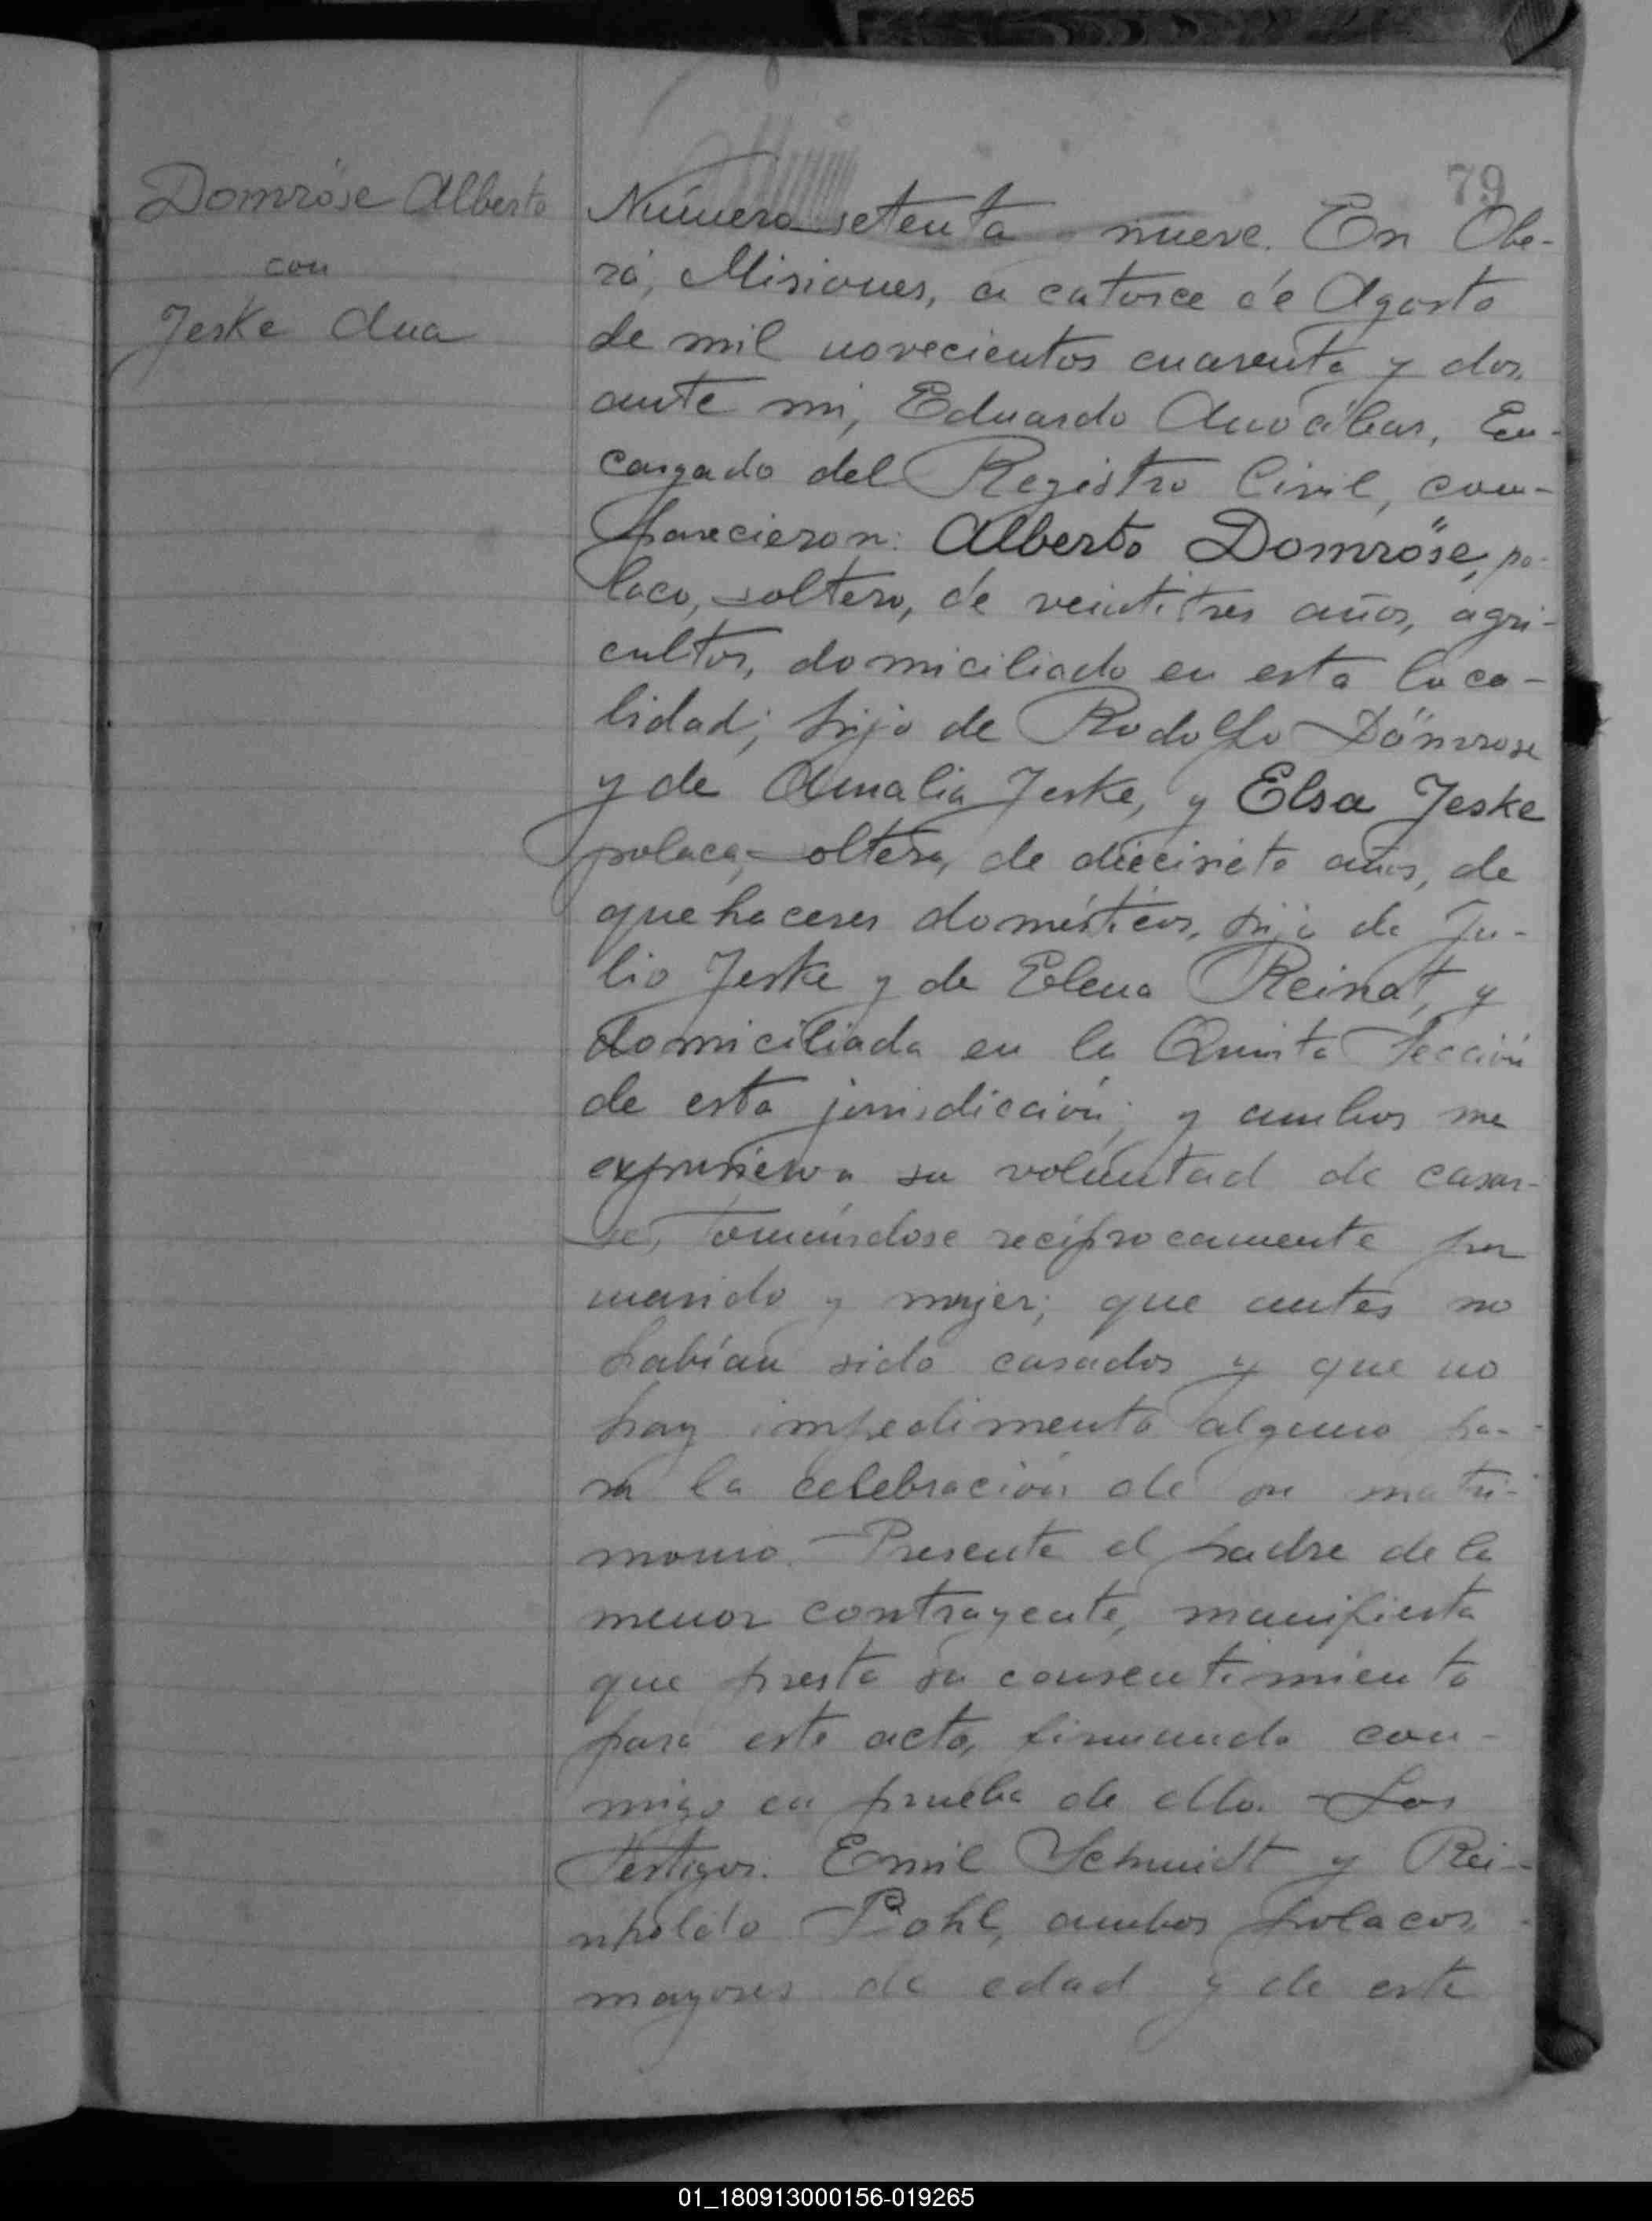 79
Domröse Alberto
con
Jeske Ana
Número setenta nueve. En Obe-
rá, Misiones, a catorce de Agosto
de mil novecientos cuarenta y dos,
ante mi, Eduardo Amocibar, En-
cargado del Registro Civil, com-
parecieron: Alberto Domröse, po-
laco, soltero, de veintitres años, agri-
cultor, domiciliado en esta loca-
lidad; hijo de Rodolfo Dömrose
y de Amalia Jeske, y Elsa Jeske
polaca, soltera, de diecisiete años, de
quehaceres domésticos, hija de Ju-
lio Jeske y de Elena Reinat, y
domiciliada en la Quinta Sección
de esta jurisdicción; y ambos me
expusieron su voluntad de casar-
se, tomándose recíprocamente por
marido y mujer; que antes no
habían sido casados y que no
hay impedimento alguno pa-
ra la celebración de su matri-
monio. Presente el padre de la
menor contrayente, manifiesta
que presta su consentimiento
para este acto, firmando con-
migo en prueba de ello. Los
Testigos: Emil Schmidt y Rei-
npoldo Pohl, ambos polacos,
mayores de edad y de este
01_180913000156-019265